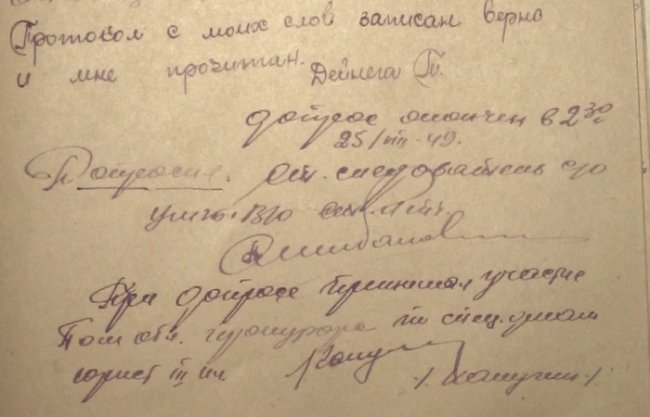 Протокол с моих слов записан верно
и мне прочитан. Дейнега П.
допрос окончен в 2 30
25/III-49.
Допросил: ст. следователь с/о
ст. л-т.
При допросе принимал участие
Пом обл. прокурора по спец. делам
юрист III кл.